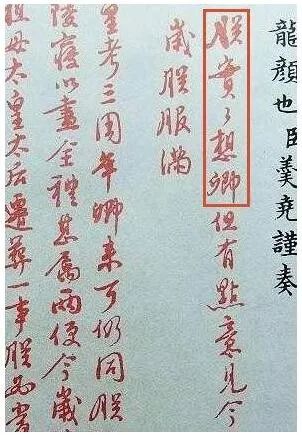 龍顏也臣羹堯謹奏
朕實々想卿但有點意見今
歲朕服滿
皇考三周年卿來可仍同朕
陵寢以盡全禮甚屬兩便今歲
祖母太皇太后遷葬一事朕必書